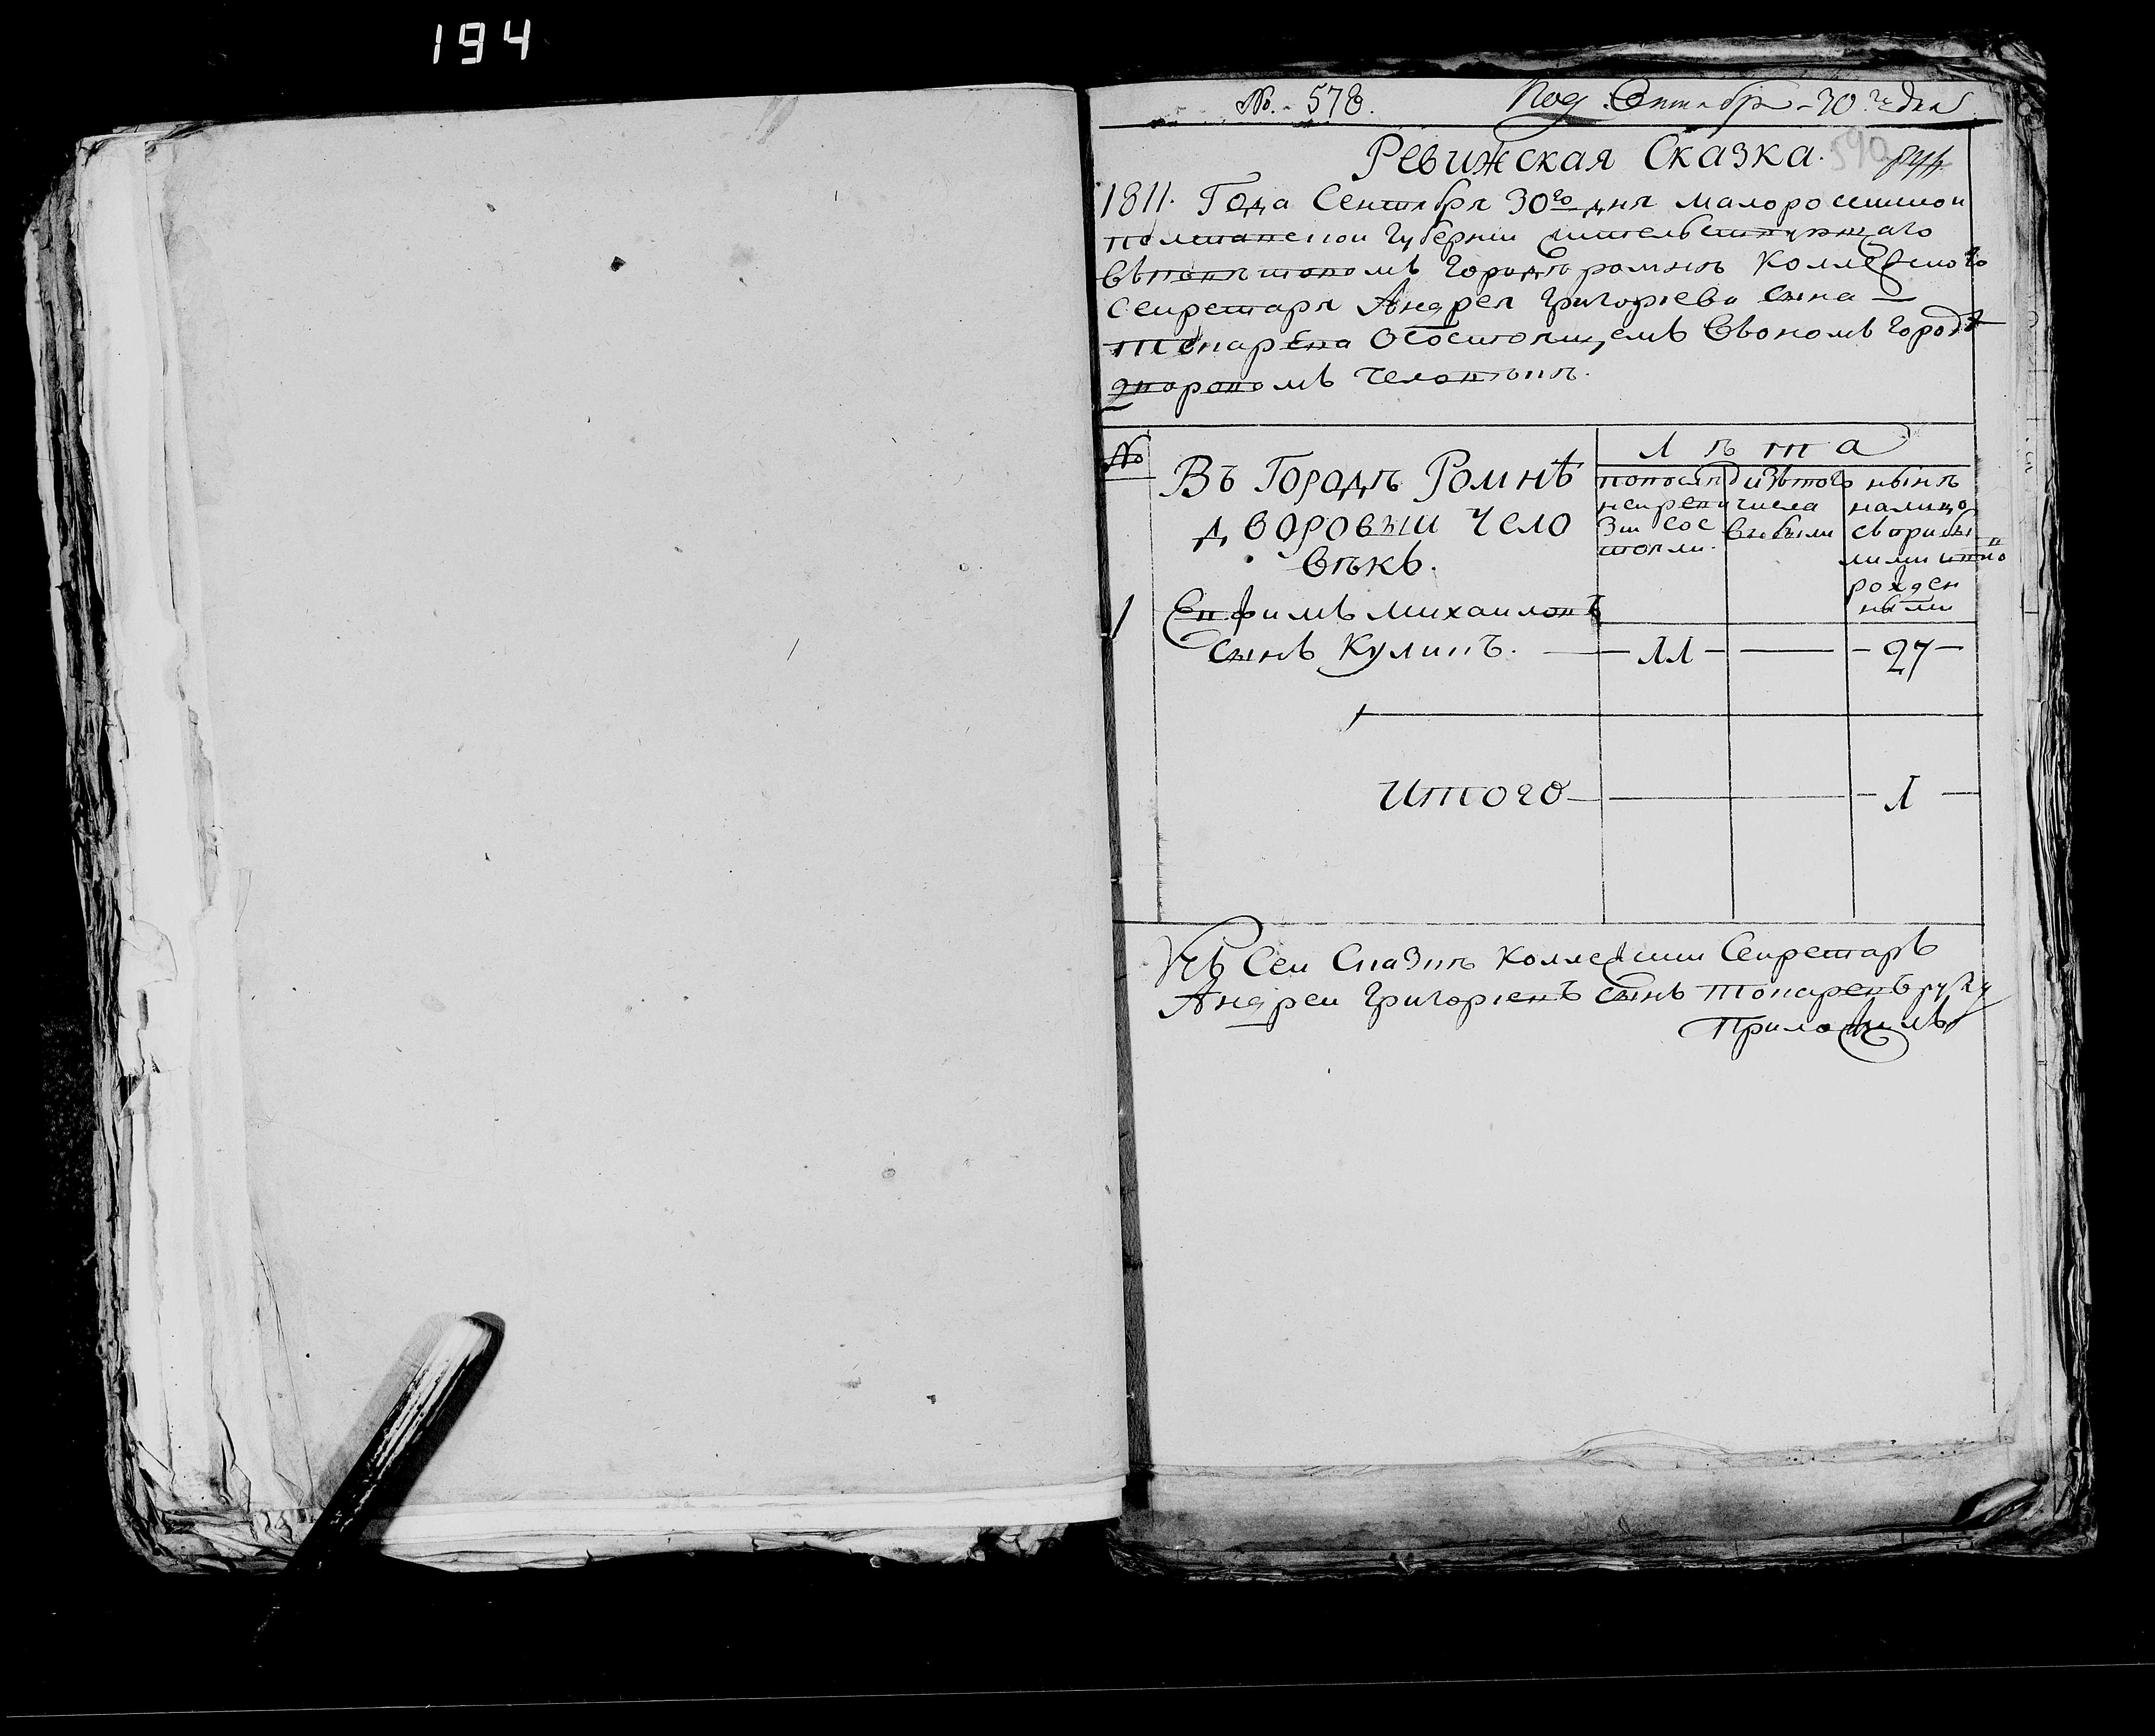 194
№. 578. Под. Сентября 30го дня
Ревижская Сказка. 590
1811. Года Сентября 30го дня малоросииской
полтавской губернии жительствующаго
въповѣтовомъ городѣ ромнѣ коллежского
секретаря Андрея григорьева сына
токарева Осостоящемъ Ввономъ городѣ
дворовомъ человѣкѣ.
№
Лѣта
Въ Городѣ Ромнѣ
дворовыи чело
вѣкъ.
попослѣд
неиреви
зіи сос
тояли.
изътого
числа
выбыли
нынѣ
налицо
съприбы
лими ино
рожден
ными
1 Евфимъ михаиловъ
сынъ Куликъ. — 11 — — 27 —
Итого — — 1 —
Къ Сеи Сказкѣ коллежски Секретаръ
Андреи григориевъ сынъ токаревъ руку
Приложилъ